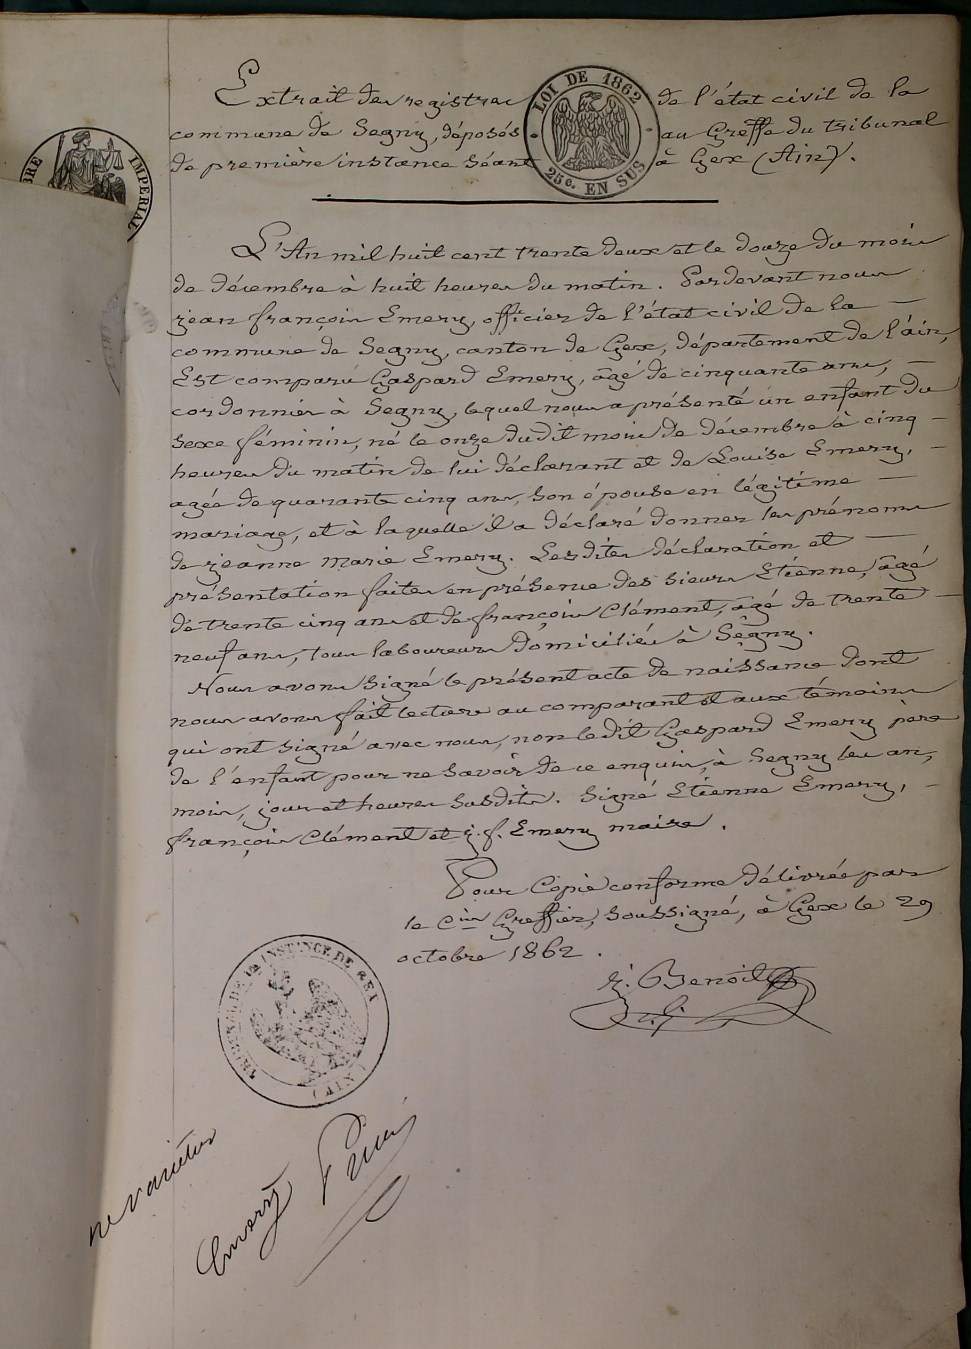 Extrait des registres de l'état civil de la
commune de Segny, déposés au Greffe du tribunal
de première instance séant à Gex (Ain).
LOI DE 1862
25c. EN SUS
IMPERIAL
L'An mil huit cent trente deux et le douze du mois
de décembre à huit heures du matin. Pardevant nous
jean françois Emery, officier de l'état civil de la
commune de Segny, canton de Gex, département de l'ain,
Est comparu Gaspard Emery, âgé de cinquante ans,
cordonnier à Segny, lequel nous a présenté un enfant du
sexe féminin, né le onze dudit mois de décembre à cinq
heures du matin de lui déclarant et de Louise Emery,
agée de quarante cinq ans, son épouse en légitime
mariage, et à laquelle il a déclaré donner les prénoms
de jeanne marie Emery. Lesdites déclaration et
présentation faites en présence des sieurs Etienne, âgé
de trente cinq ans et de françois Clément, âgé de trente
neuf ans, tous laboureurs domiciliés à Segny.
Nous avons signé le présent acte de naissance dont
nous avons fait lecture au comparant et aux témoins
qui ont signé avec nous, non ledit Gaspard Emery père
de l'enfant pour ne savoir de ce enquis, à Segny les an,
mois, jour et heures susdits. Signé Etienne Emery,
françois Clément et j. f. Emery maire.
Pour Copie conforme délivrée par
le Cmis Greffier, soussigné, à Gex le 29
octobre 1862.
j. Benoit
TRIBUNAL DE 1re INSTANCE DE GEX
(AIN)
ne varietur
Emery